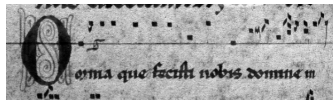 Omnia que fecisti nobis domine in